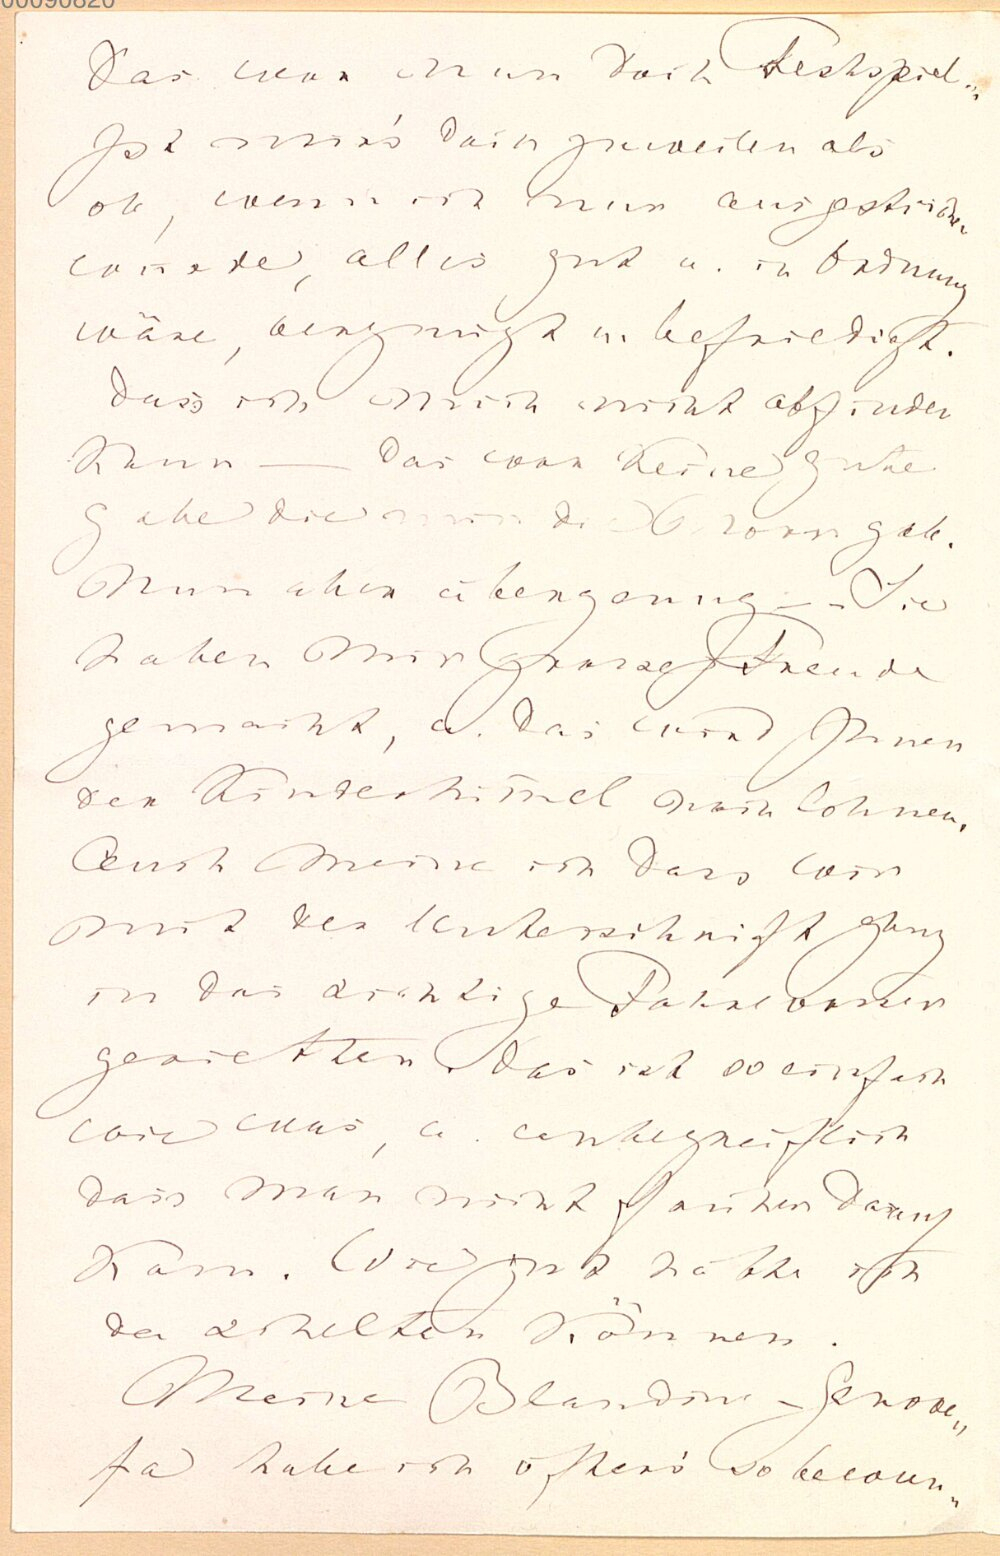 00090820
Das war nun doch Festspiel„
Ist mir's doch zuweilen als
ob, wenn ich nur ausgestrichen
würde, alles gut u. in Ordnung
wäre, vergnügt u. befriedigt.
Dass ich mich nicht abfinden
kann — das war keine gute
Gabe die mir die Norn gab.
Nun aber übergenug — - Sie
haben mir grosse Freude
gemacht, u. das wird Ihnen
der Kinderhim̅el noch lohnen.
Auch meine ich dass wir
mit der Unterschrift ganz
in das richtige Fahrwasser
gerietten. Das ist so einfach
wie was, u. unbegreiflich
dass man nicht früher darauf
kam. Wie gut hätte ich
da schelten können.
Meine Blandine - Genove„
fa habe ich öfters so bewun„